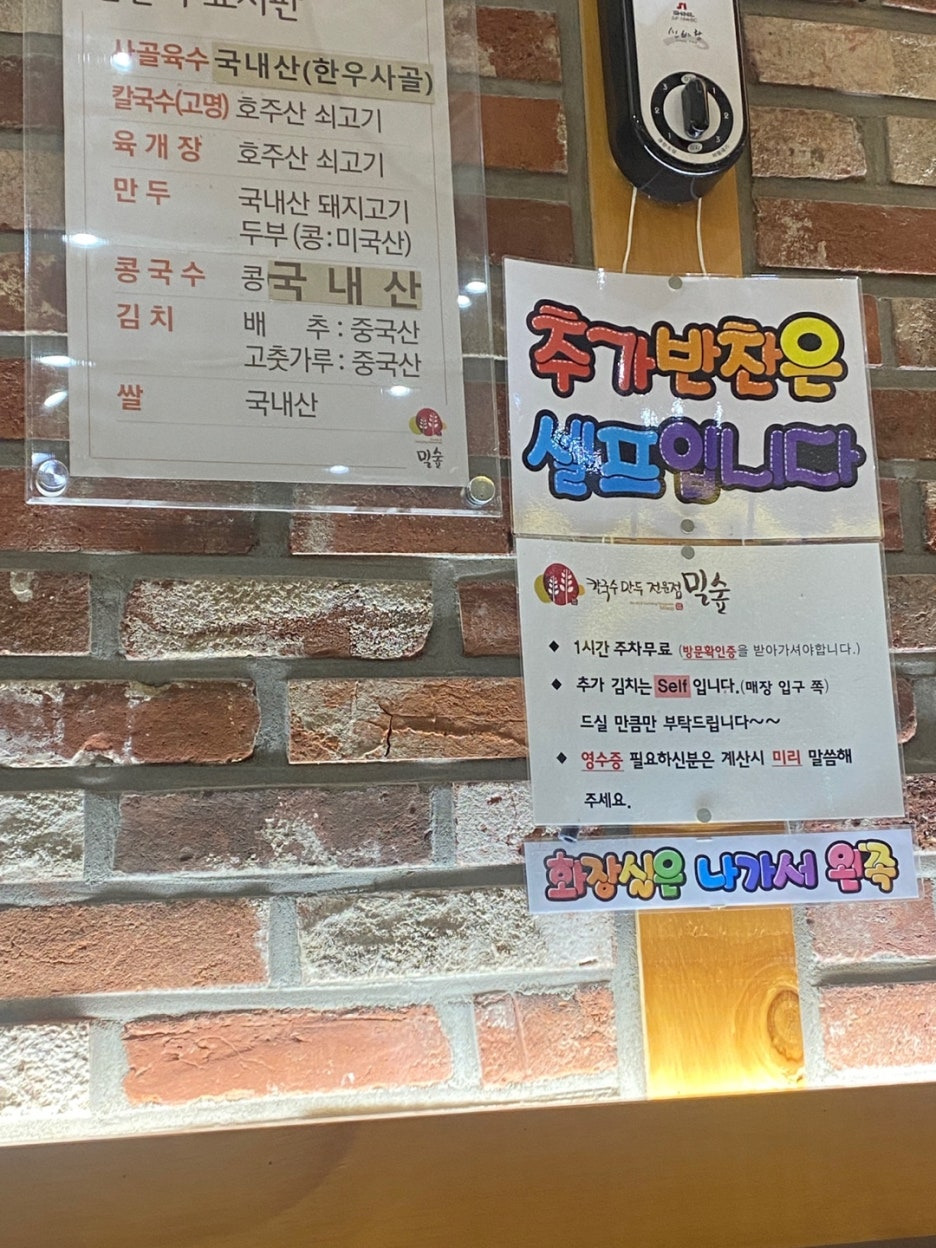 사골육수 국내산(한우사골)
칼국수(고명) 호주산 쇠고기
육개장 호주산 쇠고기
만두 국내산 돼지고기
두부(콩:미국산)
콩국수 콩국내산
김치 배 추 : 중국산
고춧가루 : 중국산
쌀 국내산
밀숲
추가반찬은
셀프입니다
칼국수 만두 전문점 밀숲
◆ 1시간 주차무료 (방문확인증을 받아가셔야합니다.)
◆ 추가 김치는 Self 입니다.(매장 입구 쪽)
드실 만큼만 부탁드립니다~~
◆ 영수증 필요하신분은 계산시 미리 말씀해
주세요.
화장실은 나가서 왼쪽